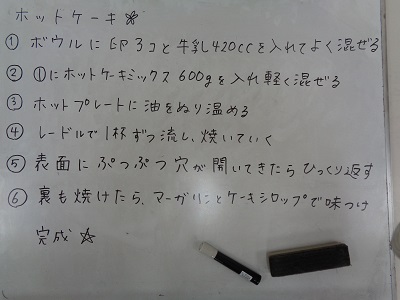 ホットケーキ☆
① ボウルに卵3コと牛乳420ccを入れてよく混ぜる
② ①にホットケーキミックス600gを入れ軽く混ぜる
③ ホットプレートに油をぬり温める
④ レードルで1杯ずつ流し、焼いていく
⑤ 表面にぷつぷつ穴が開いてきたらひっくり返す
⑥ 裏も焼けたら、マーガリンとケーキシロップで味つけ
完成☆